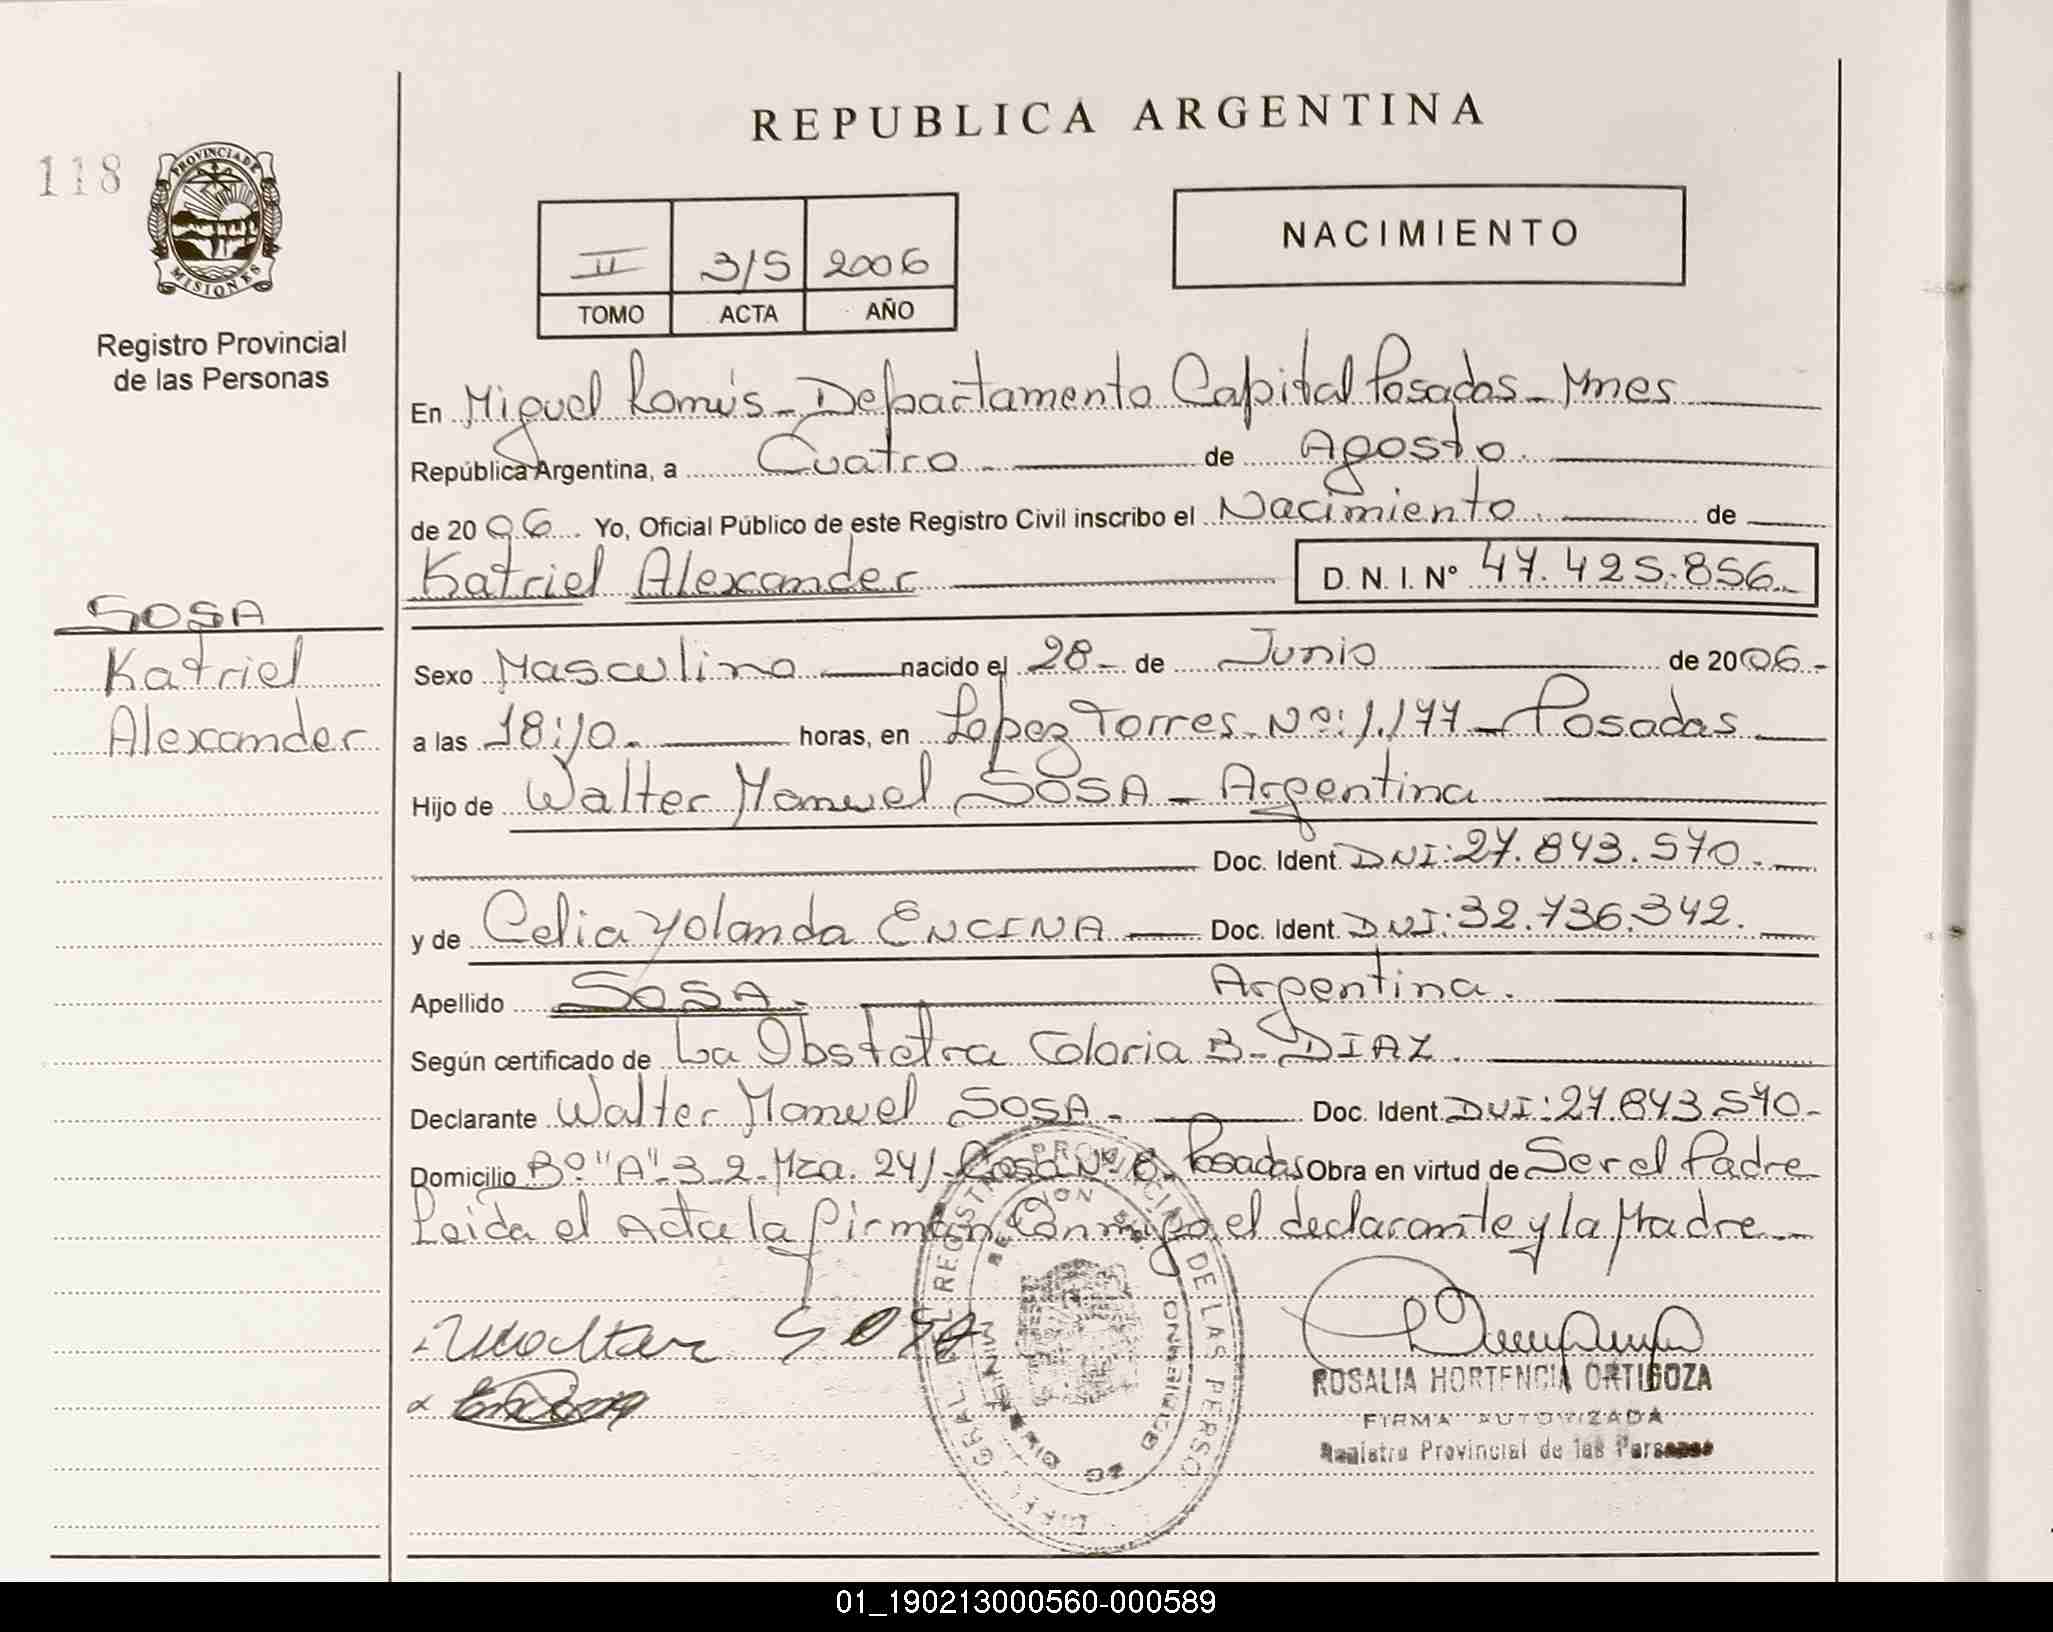 REPUBLICA ARGENTINA
118
PROVINCIA DE
MISIONES
Registro Provincial
de las Personas
NACIMIENTO
II 315 2006
TOMO ACTA AÑO
En Miguel Lomús - Departamento Capital Posadas - Mnes
República Argentina, a Cuatro de Agosto
de 2006. Yo, Oficial Público de este Registro Civil inscribo el Nacimiento de
Katriel Alexander D. N. I. Nº 47.425.856
SOSA
Katriel
Alexander
Sexo Masculino nacido el 28 - de Junio de 2006 -
a las 18:10 horas, en Lopez Torres - Nº: 1.177 - Posadas
Hijo de Walter Manuel SOSA - Argentina
Doc. Ident. DNI: 27.843.570 -
y de Celia Yolanda ENCINA Doc. Ident. DNI: 32.736.342.
Apellido SOSA - Argentina.
Según certificado de La Obstetra B - DIAZ.
Declarante Walter Manuel SOSA - Doc. Ident. DNI: 27.843.570 -
Domicilio Bº "A" - 3 2 - Mza. 241 - Casa Nº 6 - Posadas Obra en virtud de Ser el Padre
Leida el Acta la firman conmigo el declarante y la Madre
Walter SOSA
ROSALIA HORTENCIA ORTIGOZA
FIRMA AUTORIZADA
Registro Provincial de las Personas
01_190213000560-000589